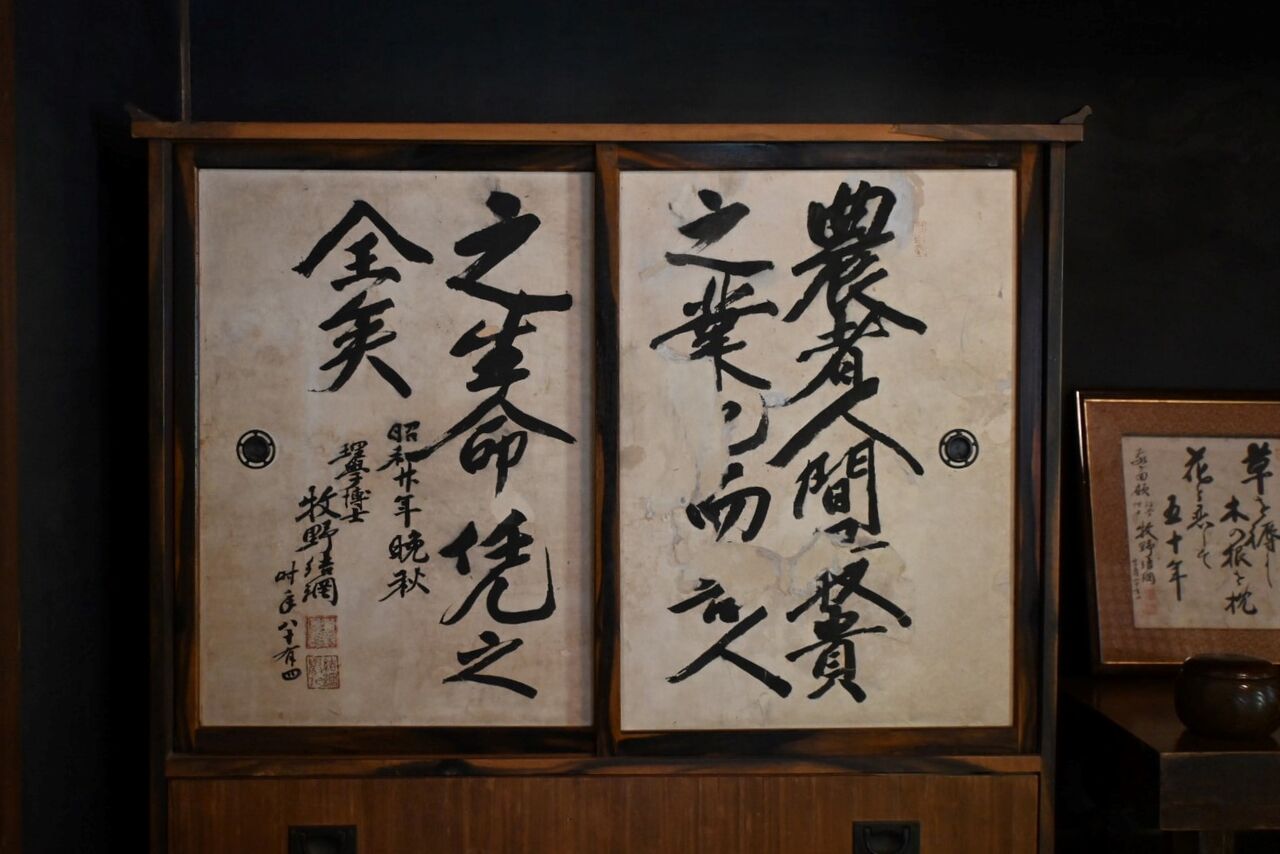 農者人間至賢貴
之業也而吾人
之生命凭之
全矣
昭和廿年晩秋
理学博士
牧野結網
時年八十有四
草を褥に
木の根を枕
花と恋して
五十年
牧野結網